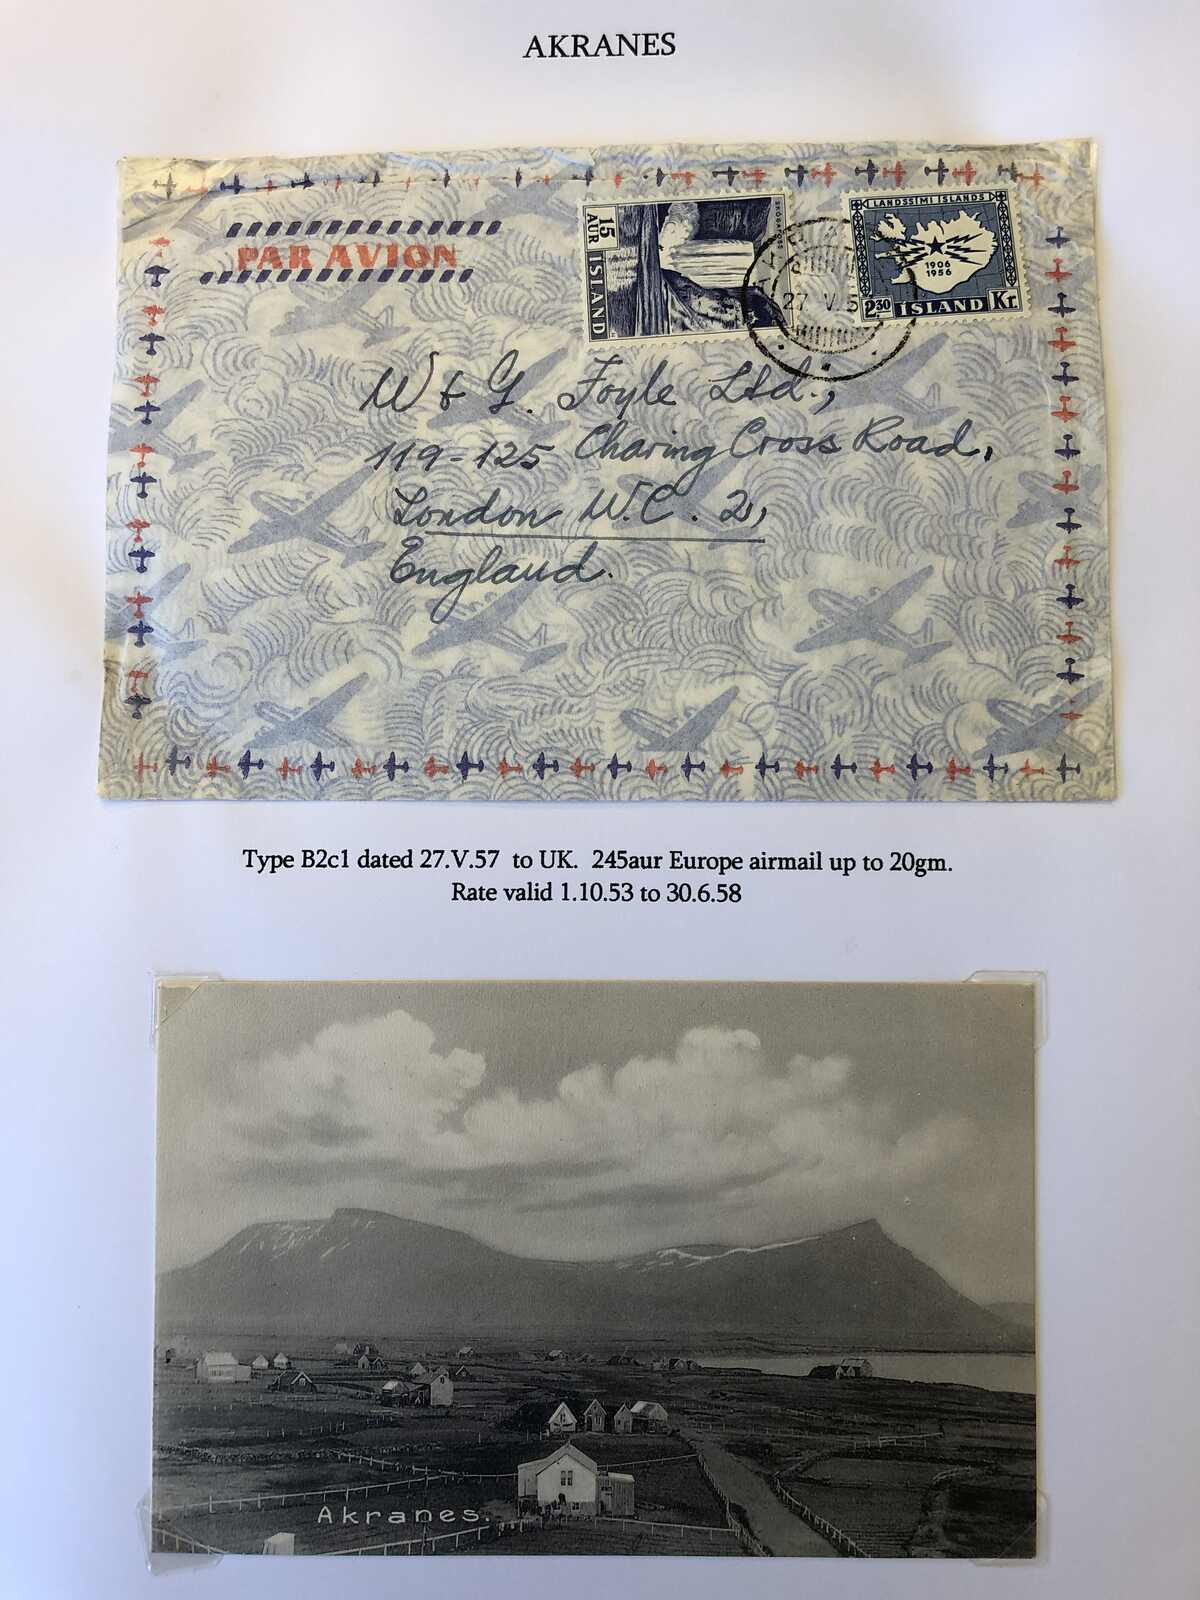 AKRANES
PAR AVION
15 AUR
ÍSLAND
LANDSSÍMI ÍSLANDS
1906
1956
2.30 ÍSLAND Kr.
27 V. 5
W & G. Foyle Ltd.,
119-125 Charing Cross Road,
London W.C. 2,
England.
Type B2c1 dated 27.V.57 to UK. 245aur Europe airmail up to 20gm.
Rate valid 1.10.53 to 30.6.58
Akranes.